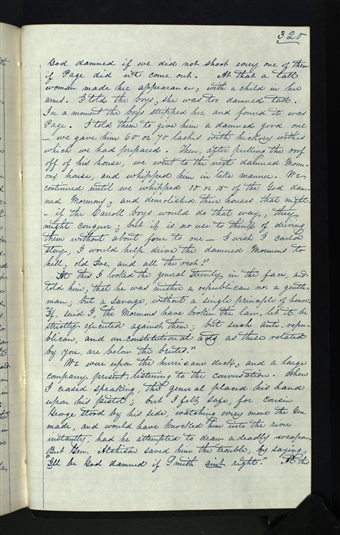 325
God damned if we did not shoot every one of them
if Page did not come out. At that a tall
woman made her appearance, with a child in her
arms. I told the boys, she was too damned tall.
In a moment the boys stripped her and found it was
Page. I told them to give him a damned good one
— we gave him 60 or 70 lashes with hickory withes
which we had prepared. Then, after pulling the roof
off of his house, we went to the next damned Mormons
house, and whipped him in like manner. We
continued until we whipped 10 or 15 of the God dam-
ned Mormons; and demolished their houses that night
— if the Carroll boys would do that way, they
might conquer; but it is no use to think of driving
them without about four to one — I wish I could
stay, I would help drive the damned Mormons to
hell, old Joe, and all the rest."
At this I looked the general sternly, in the face, and
told him, that he was neither a republican nor a gentle-
man; but a savage, without a single principle of honor.
If, said I, the Mormons have broken the law, let it be
strictly executed against them; but such anti, repu-
blican, and unconstitutional acts as these related
by you, are below the brutes."
We were upon the hurricane deck, and a large
company present, listening to the conversation. When
I ceased speaking, the general placed his hand
upon his pistol; but I felt safe, for cousin
George stood by his side, watching every move he
made, and would have knocked him into the river
instantly, had he attempted to draw a deadly weapon.
But Gen. Atchison saved him the trouble, by saying,
I'll be God damned if Smith ain't right." At the